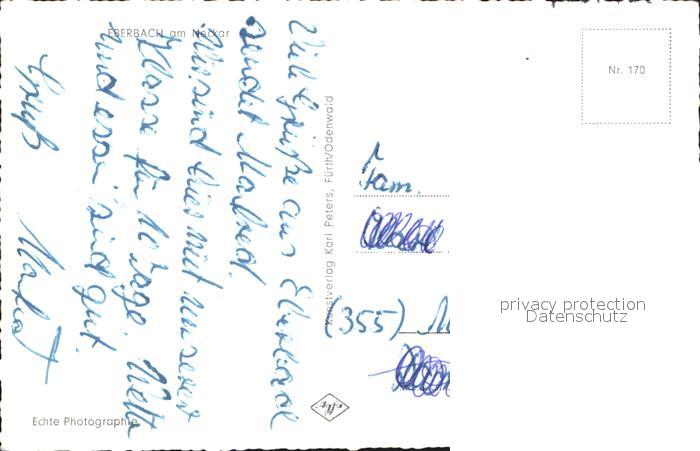 EBERBACH am Neckar
Viele Grüße aus Eberbach
sendet Manfred.
Wir sind hier mit unserer
Klasse für 10 Tage. Wetter
und essen sind gut.
Gruß Manfred
Kunstverlag Karl Peters, Fürth/Odenwald
Echte Photographie
Nr. 170
Fam.
(355)
privacy protection
Datenschutz